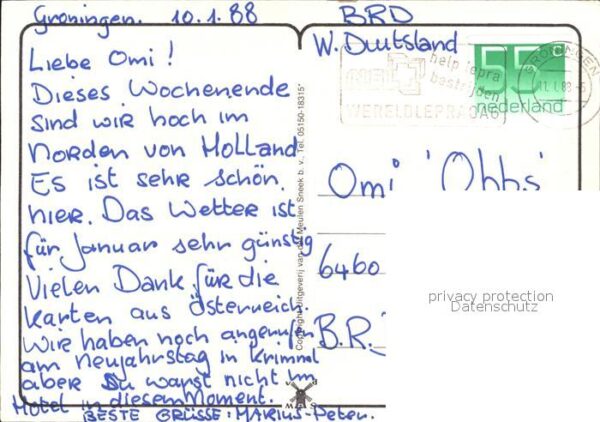 Groningen. 10.1.88
BRD
W. Duitsland
Liebe Omi !
Dieses Wochenende
sind wir hoch im
Norden von Holland
Es ist sehr schön
hier. Das Wetter ist
für Januar sehr günstig
Vielen Dank für die
Karten aus Österreich.
Wir haben noch angerufen
am Neujahrstag in Krimml
aber Du warst nicht im
Hotel in diesem Moment.
BESTE GRÜSSE: MARIUS-Peter.
help lepra
bestrijden
WERELDLEPRADAG
GRONINGEN
55c
nederland
Omi 'Obbs'
6460
B.R.
Copyright Uitgeverij van der Meulen Sneek b.v., Tel. 05150-18315*
privacy protection
Datenschutz